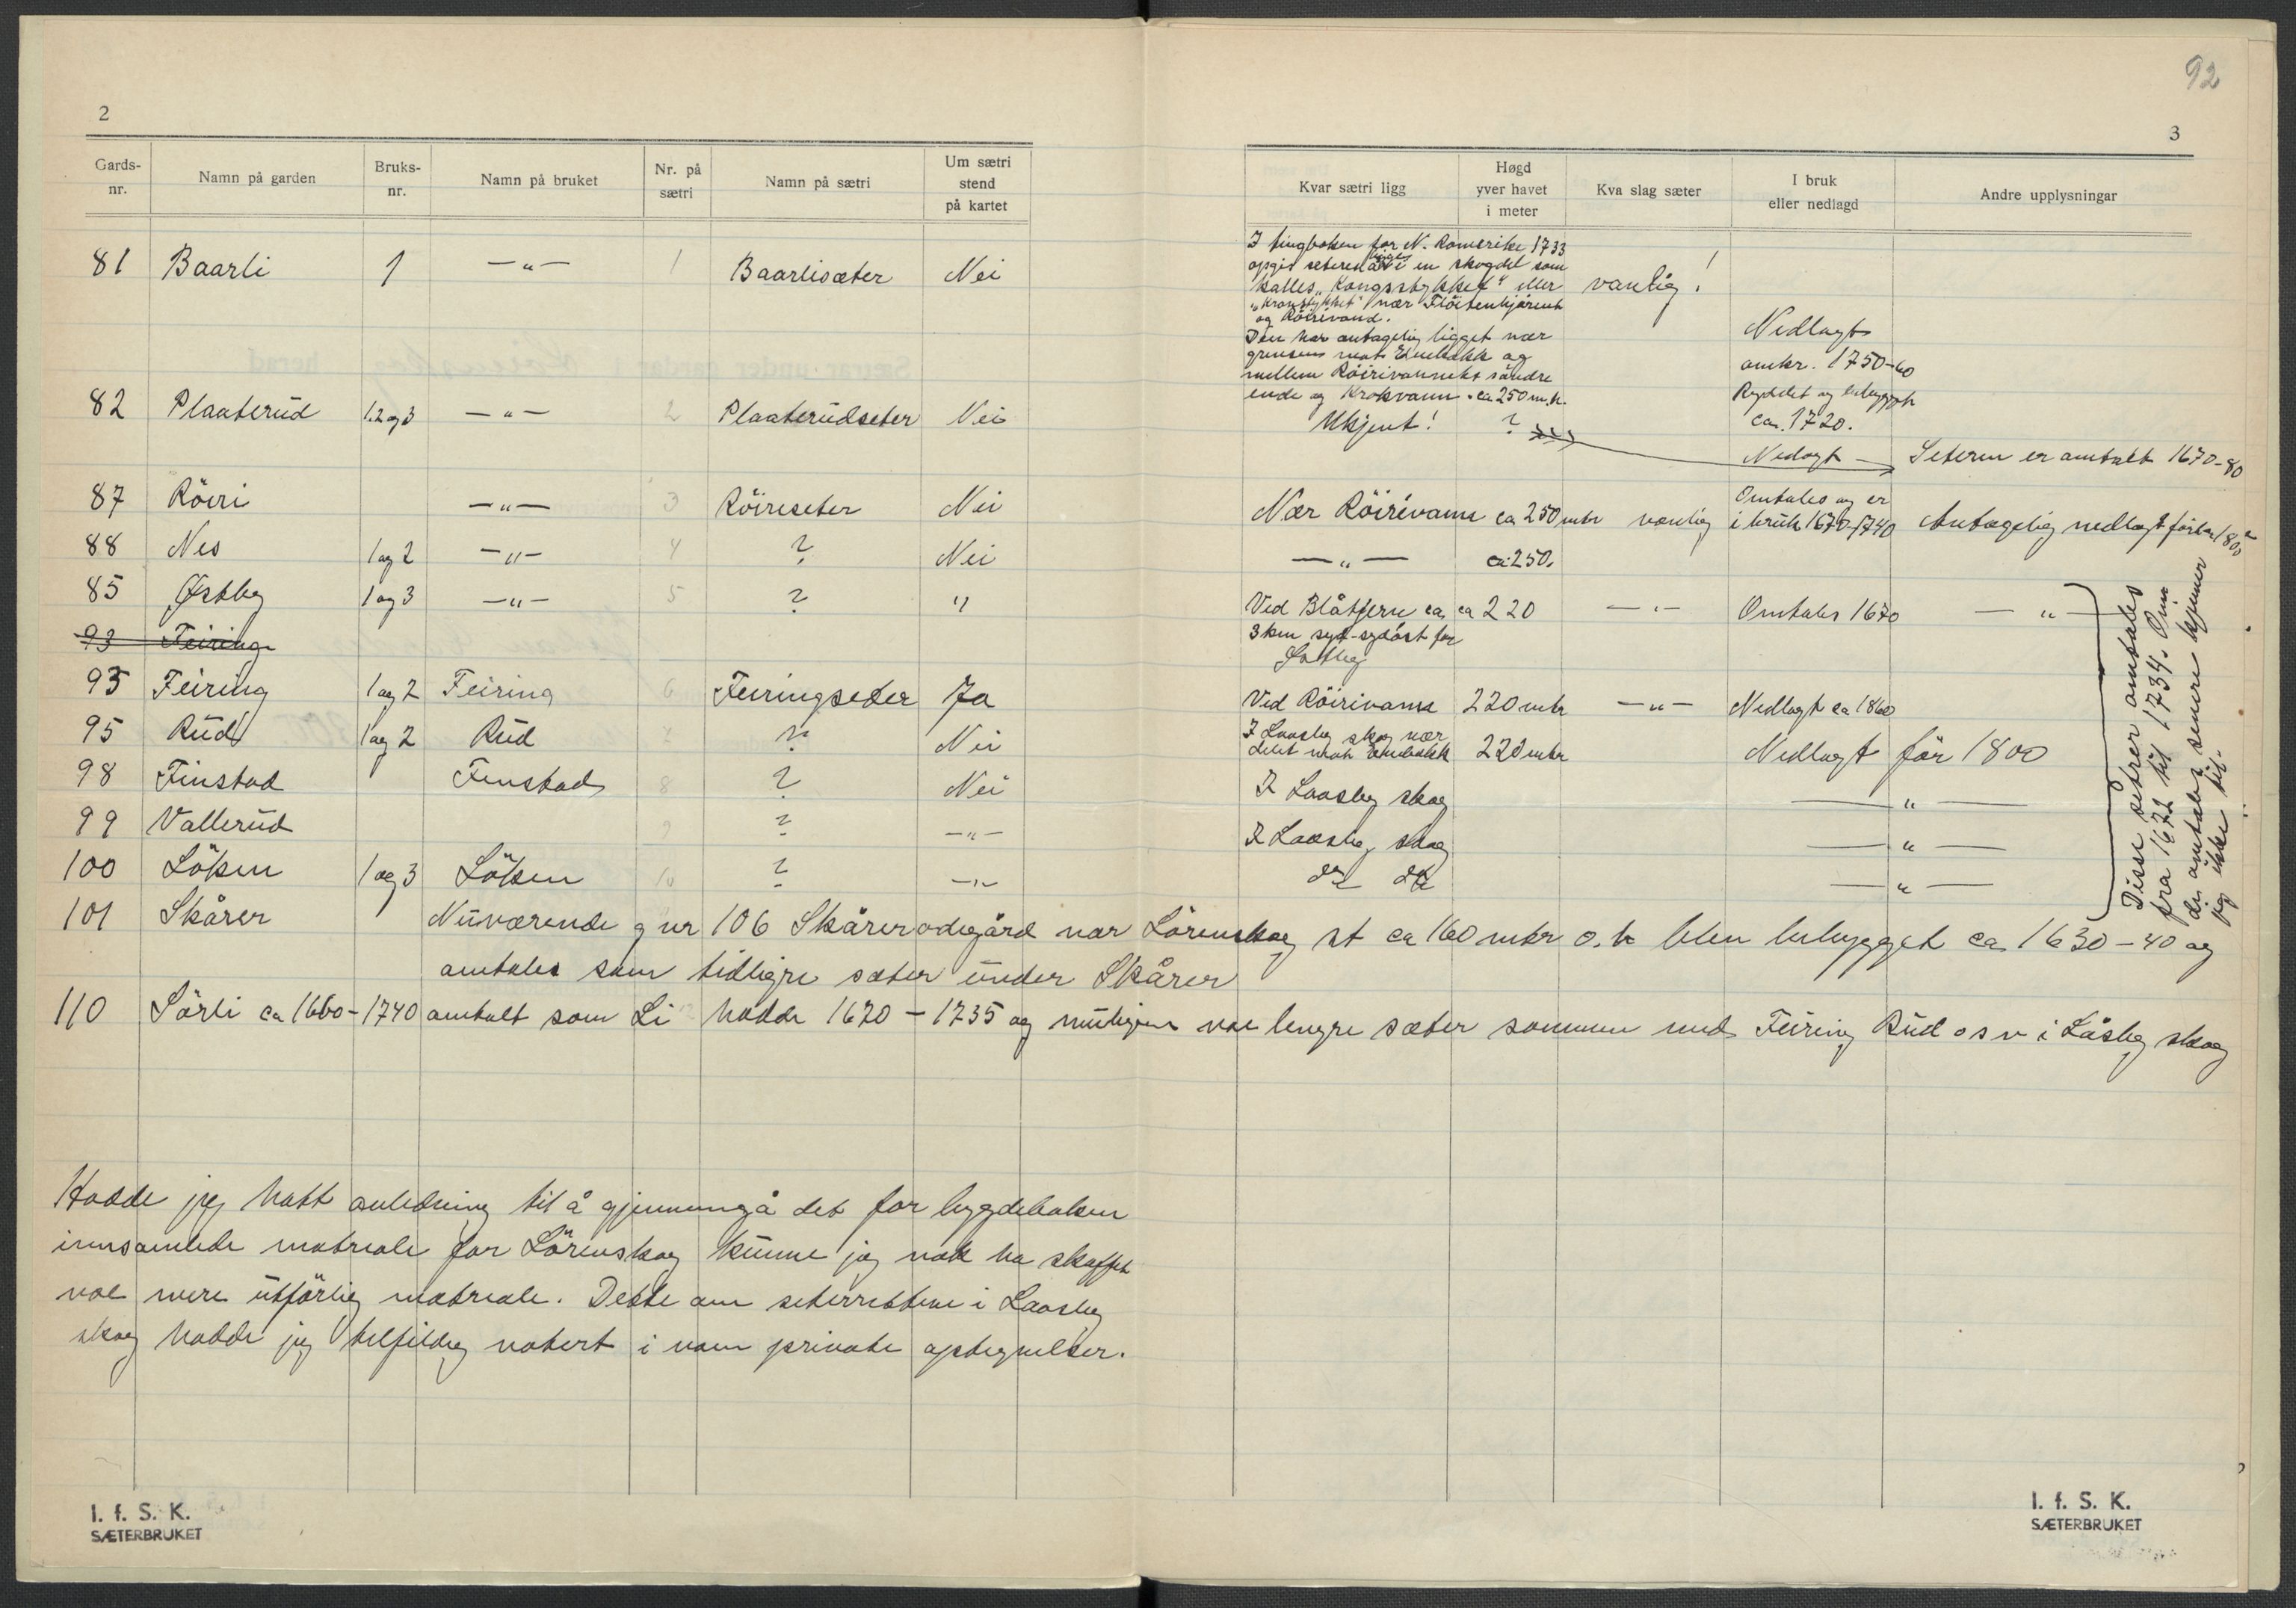 92
2
3
Gards-nr. Namn på garden Bruks-nr. Namn på bruket Nr. på sætri Namn på sætri Um sætri stend på kartet
Kvar sætri ligg Høgd yver havet i meter Kva slag sæter I bruk eller nedlagd Andre upplysningar
81 Baarli 1 —"— 1 Baarlisæter Nei
I tingboken for N. Romerike 1733
opgis seteren å ligge i en skogdel som
kalles „Kongsstykket" eller
„Kronstykket" nær Flöitenkjärent
og Röirivand.
Den har antagelig ligget nær
grensen mot Enebakk og
mellem Röirivannets söndre
ende og Krokvann . ca 250 m.h.
vanlig !
Nedlagt
omkr. 1750-60
82 Plaaterud 1.2 og 3 —"— 2 Plaaterudseter Nei
Ukjent! ?
Ryddet og bebygget
ca. 1720.
Nedlagt — Seteren er omtalt 1670-80
87 Röiri —"— 3 Röireseter Nei Nær Röirivann ca 250 mtr vanlig Omtales og er
i bruk 1670-1740 Antagelig nedlagt för ca 1800
88 Nes 1 og 2 —"— 4 ? Nei —"— ca 250.
85 Østby 1 og 3 —"— 5 ? " Ved Blåtjern ca ca 220 —"— Omtales 1670 —"—
3 km syd-sydöst for
Östby
93 Feiring
93 Feiring 1 og 2 Feiring 6 Feiringseter Ja Ved Röirivann 220 mtr —"— Nedlagt ca 1860
95 Rud 1 og 2 Rud 7 ? Nei I Laasby skog nær
delet mot Enebakk 220 mtr Nedlagt för 1800
98 Finstad Finstad 8 ? Nei I Laasby skog —"—
99 Vallerud 9 ? —"— I Laasby skog —"—
100 Löken 1 og 3 Löken 10 ? —"— do do —"—
Disse setrer omtales
fra 1672 til 1734. Om
de omtales senere kjenner
jeg ikke til.
101 Skårer Nuværende g nr 106 Skårerödegård nær Lörenskog st ca 160 mtr o. h blev bebygget ca 1630-40 og
omtales som tidligre sæter under Skårer
110 Sörli ca 1660-1740 omtalt som Li hadde 1670-1735 og muligens noe lengre sæter sammen med Feiring Rud osv i Låsby skog
Hadde jeg hatt anledning til å gjennemgå det for bygdeboken
innsamlede matreale for Lörenskog kunne jeg nok ha skaffet
noe mere utförlig matreale. Dette om seterrettene i Laasby
skog hadde jeg tilfeldig notert i noen private optegnelser.
I. f. S. K.
SÆTERBRUKET
I. f. S. K.
SÆTERBRUKET